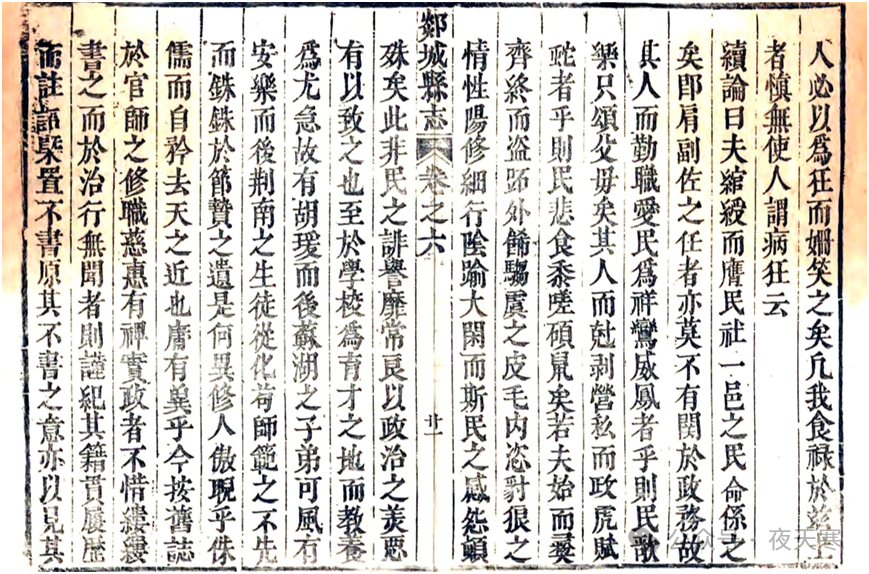 人必以爲狂而姍笑之矣凡我食祿於兹土
者愼無使人謂病狂云
續論曰夫綰綬而膺民社一邑之民命係之
矣卽肩副佐之任者亦莫不有関於政務故
其人而勤職愛民爲祥鸞威鳳者乎則民歌
樂只頌父毋矣其人而尅剥營私而政虎賦
蛇者乎則民悲食黍嗟碩鼠矣若夫始而龔
齊終而盗跖外餙騶虞之皮毛内恣豺狼之
情性陽修細行陰踰大閑而斯民之感怨頓
郯城縣志 卷之六 廿一
殊矣此非民之誹譽靡常良以政治之美惡
有以致之也至於學校爲育才之地而教養
爲尤急故有胡瑗而後蘇湖之子弟可風有
安樂而後荆南之生徒從化苟師範之不先
而銖銖於節贄之遺是何異修人傲睨乎侏
儒而自矜去天之近也庸有異乎今按舊誌
於官師之修職慈惠有禆實政者不惜縷縷
書之而於治行無聞者則謹紀其籍貫履歴
而註語槩置不書原其不書之意亦以見其
公众号 · 夜天寒